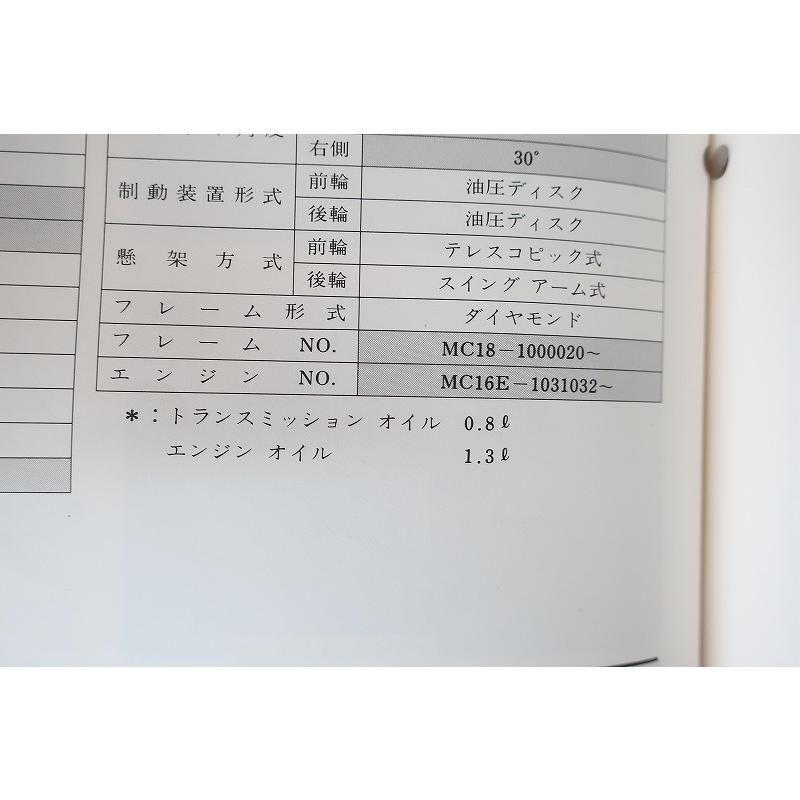 右側 30°
制動装置形式 前輪 油圧ディスク
後輪 油圧ディスク
懸架方式 前輪 テレスコピック式
後輪 スイング アーム式
フレーム形式 ダイヤモンド
フレーム NO. MC18－1000020～
エンジン NO. MC16E－1031032～
＊：トランスミッション オイル 0.8ℓ
エンジン オイル 1.3ℓ